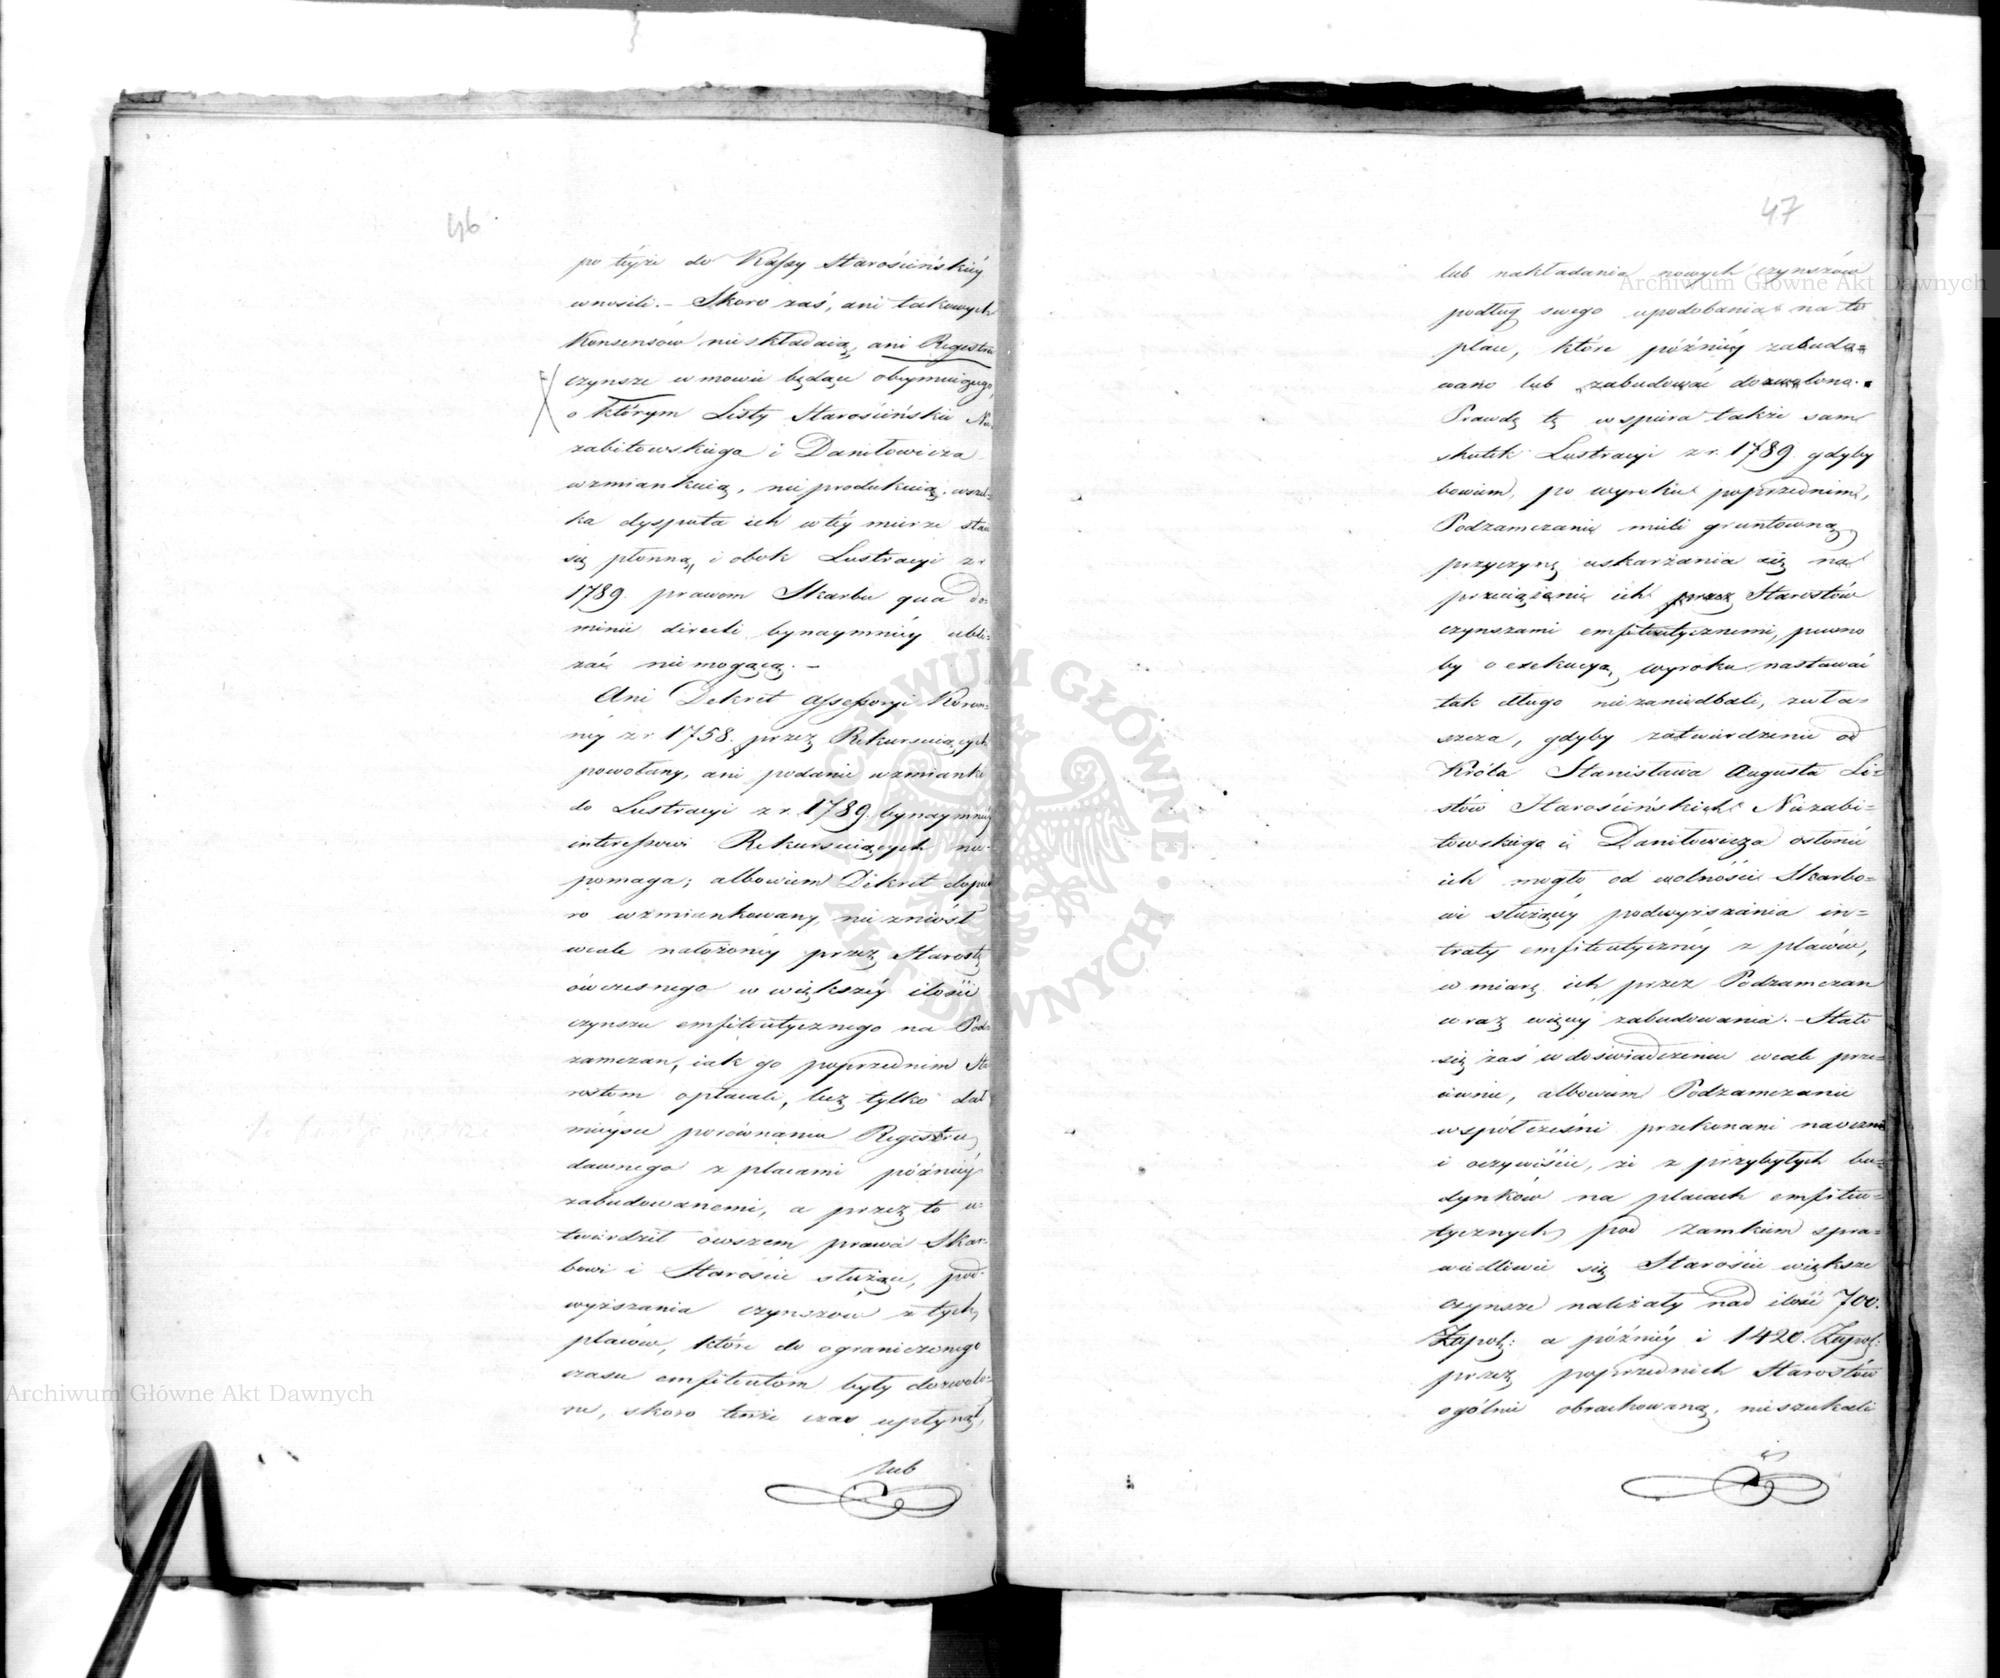 46
po teyże do Kassy Starościńskiéy
wnosili. – Skoro zaś, ani takowych
Konsensów nieskładaią, ani Regestru
czynsze w mowie będące obeymuiącego,
o którym Listy Starościńskie Nie-
zabitowskiego i Daniłowicza
wzmiankuią, nie produkuią, wszel-
ka dysputa ich w téy mierze staie
się płonną, i obok Lustracyi z r.
1789. prawom Skarbu qua do-
minii directi bynaymniéy ubli-
żać niemogącą. –
Ani Dekret Assessoryi Koron-
néy z r. 1758. przez Rekursuiących
powołany, ani podanie wzmianki
do Lustracyi z r. 1789. bynaymniéy
interessowi Rekursuiących nie-
pomaga; albowiem Dekret dopie-
ro wzmiankowany, nie zniósł
wcale nałożonéy przez Starostę
ówczesnego w większéy ilości
czynszu emfiteutycznego na Pod-
zamczan, iak go poprzednim Sta-
rostom opłacali, lecz tylko dał
mieysce porównaniu Regestru
dawnego z placami późniéy
zabudowanemi, a przez to u-
twierdził owszem prawa Skar-
bowi i Staroście służące, pod-
wyższania czynszów z tych
placów, które do ograniczonego
czasu emfiteutom były dozwolo-
ne, skoro tenże czas upłynął,
lub
47
lub nakładania nowych czynszów
podług swego upodobania na te
place, które późniéy zabudo-
wano lub zabudować dozwolono.
Prawdę tę wspiera także sam
skutek Lustracyi z r. 1789. gdyby
bowiem, po wyroku poprzednim,
Podzamczanie mieli gruntowną
przyczynę uskarżania się na
przeciążenie ich przez Starostów
czynszami emfiteutycznemi, pewno
by o exekucyą wyroku nastawać
tak długo niezaniedbali, zwła-
szcza, gdyby zatwierdzenie od
Króla Stanisława Augusta Li-
stów Starościńskich Niezabi-
towskiego i Daniłowicza osłonić
ich mogło od wolności Skarbo-
wi służącéy podwyższania in-
traty emfiteutycznéy z placów,
w miarę ich przez Podzamczan
coraz więcéy zabudowania. – Stało
się zaś w doświadczeniu wcale prze-
ciwnie, albowiem Podzamczanie
współcześni przekonani naocznie
i oczywiście, że z przybyłych bu-
dynków na placach emfiteu-
tycznych pod Zamkiem spra-
wiedliwie się Staroście większe
czynsze należały nad ilość 700.
Złpol: a późniéy i 1420. Złpol:
przez poprzednich Starostów
ogólnie obrachowaną, nieszukali